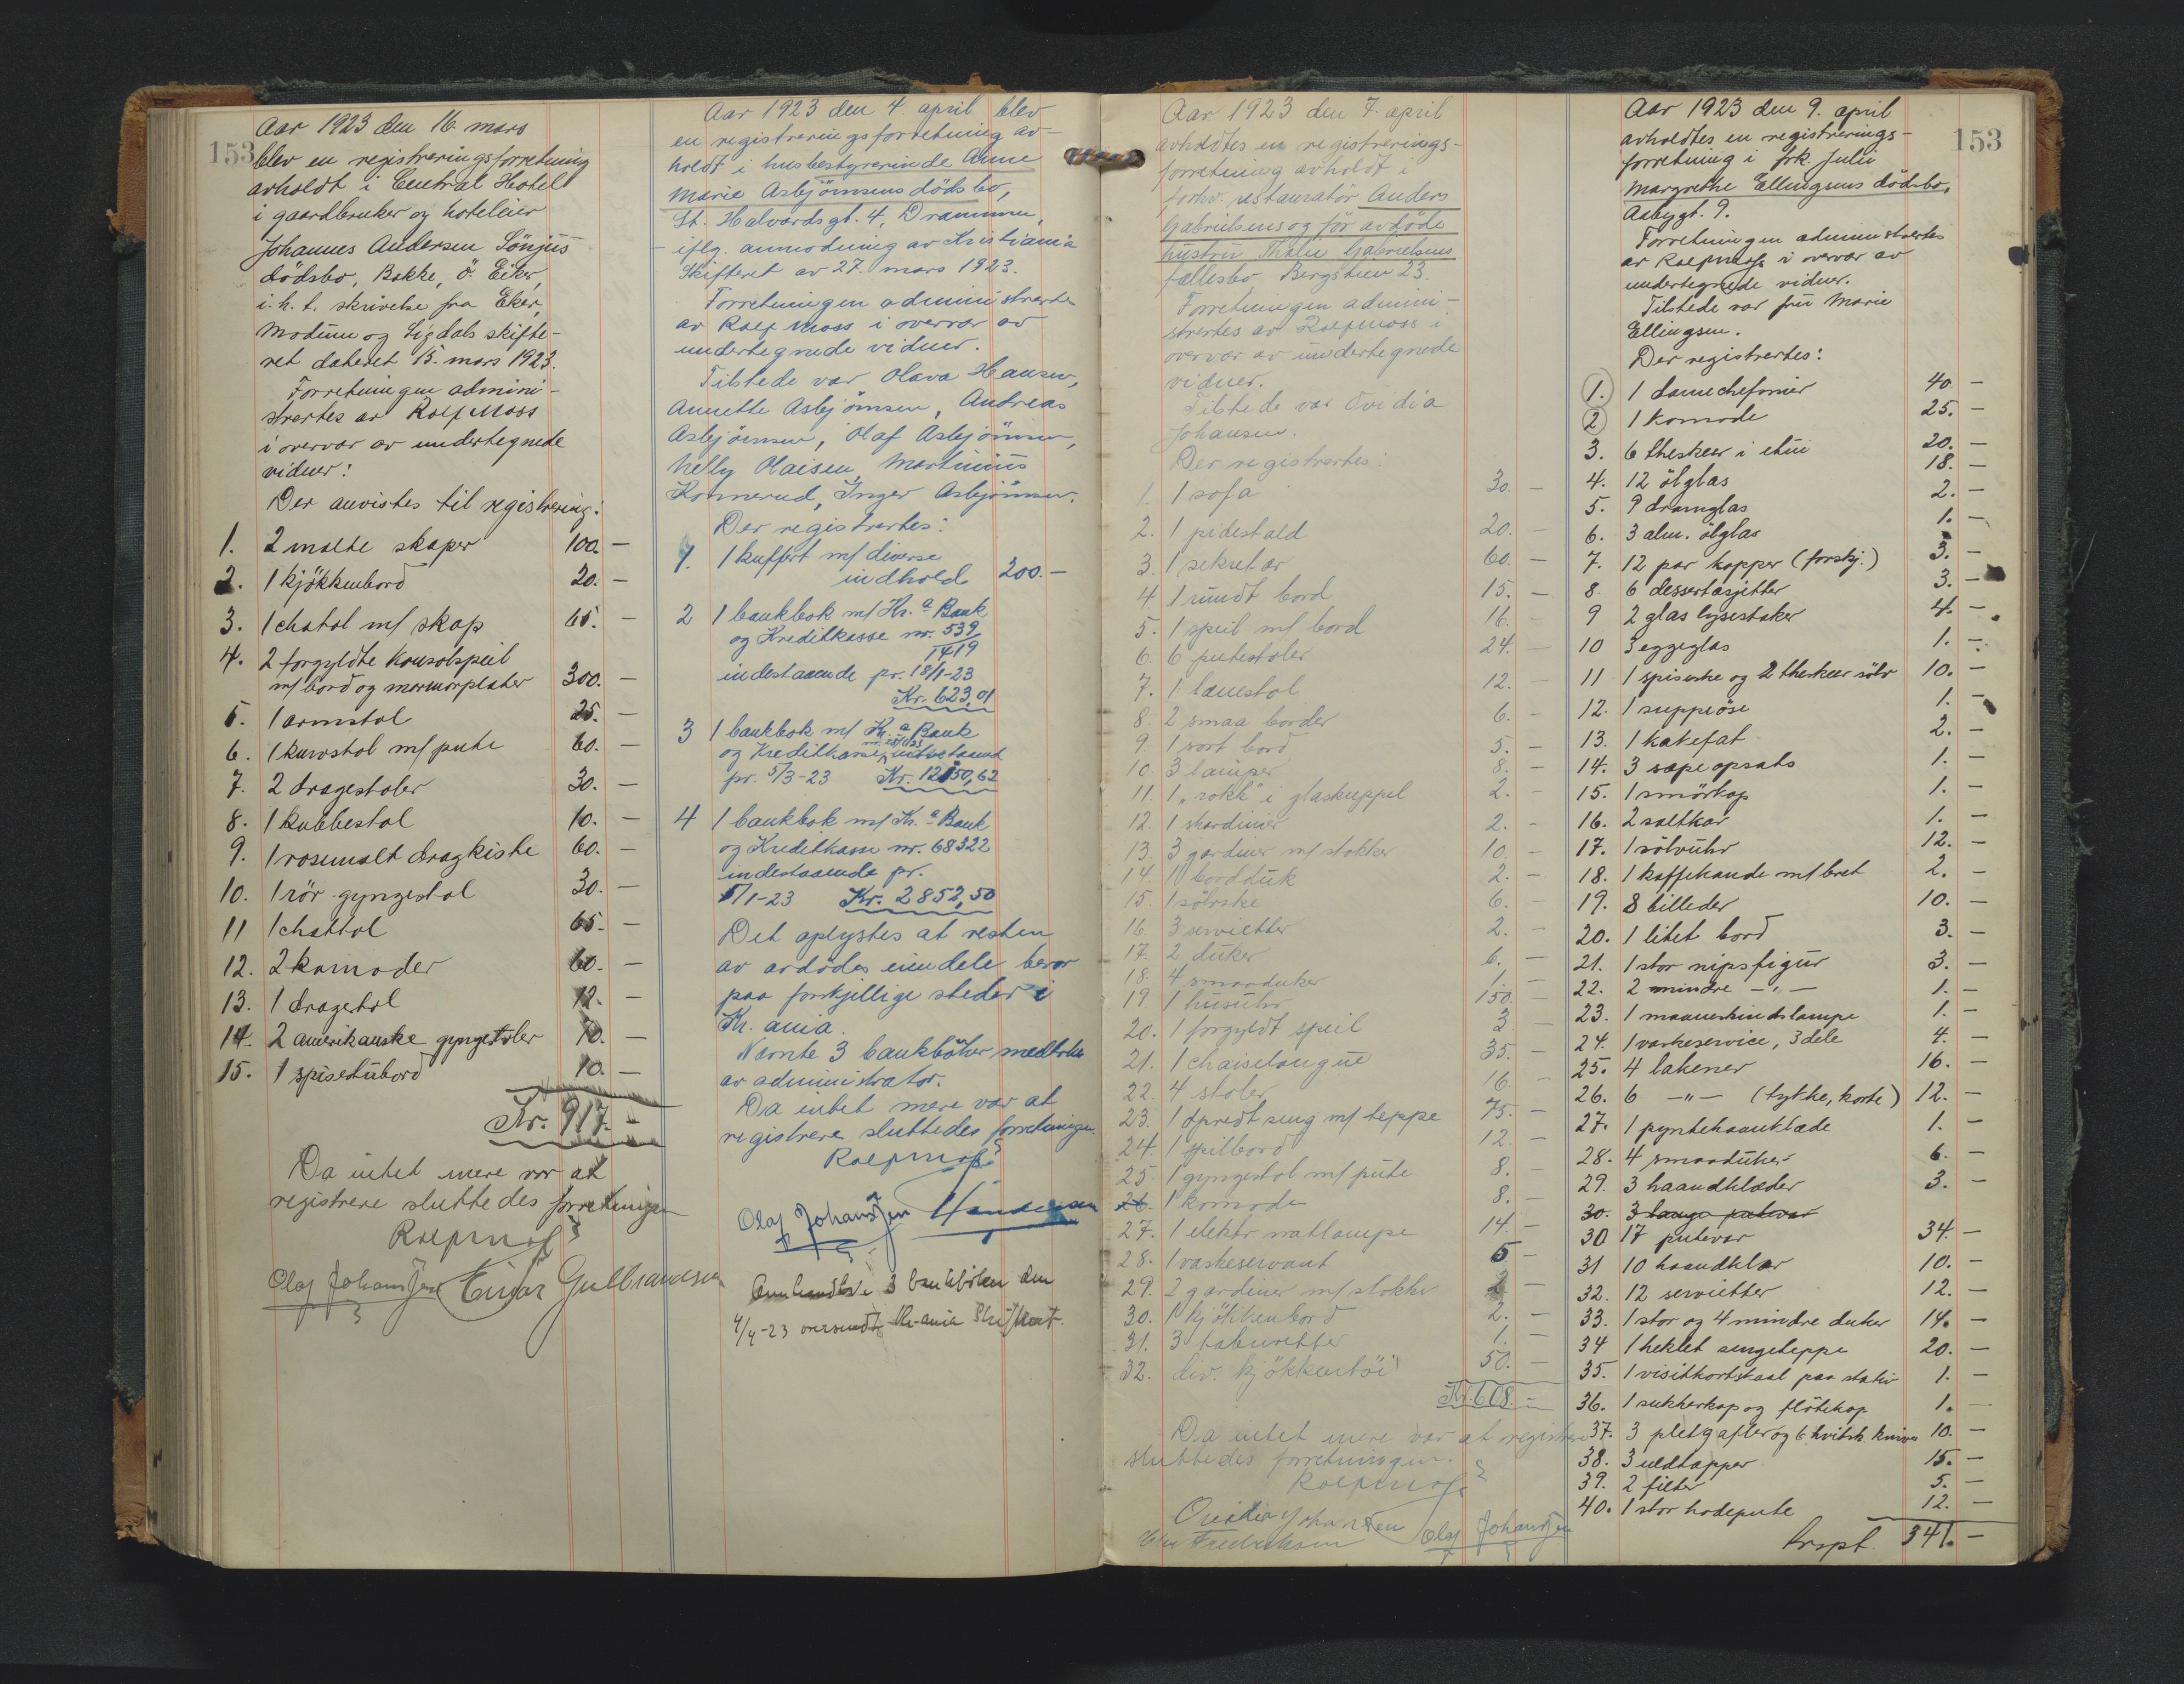 153
Aar 1923 den 16. mars
blev en registreringsforretning
avholdt i Central Hotel
i gaardbruker og hoteleier
Johannes Andersen Sönjus
dödsbo, Bakke, Ö. Eiker,
i. h. t. skrivelse fra Eker,
Modum og Sigdals skifte-
ret dateret 15. mars 1923.
Forretningen admini-
strertes av Rolf Moss
i overvær av undertegnede
vidner:
Der anvistes til registrering:
1. 2 malte skaper 100. —
2. 1 kjökkenbord 20. —
3. 1 chatol m/ skap 65. —
4. 2 forgyldte konsolspeil
m/ bord og marmorplater 300. —
5. 1 armstol 25. —
6. 1 kurvstol m/ pute 60. —
7. 2 dragestoler 30. —
8. 1 kubbestol 10. —
9. 1 rosemalt dragkiste 60. —
10. 1 rör gyngestol 30. —
11 1 chattol 65. —
12. 2 komoder 60. —
13. 1 dragestol 12. —
14. 2 amerikanske gyngestoler 70. —
15. 1 spisestubord 10. —
Kr. 917. —
Da intet mere var at
registrere sluttedes forretningen
Rolf Moss
Olaf Johansen Einar Gulbrandsen
Aar 1923 den 4. april blev
en registreringsforretning av-
holdt i husbestyrerinde Anne
Marie Asbjörnsens dödsbo,
St. Halvardsgt. 4, Drammen,
— iflg. anmodning av Kristiania
Skifteret av 27. mars 1923.
Forretningen administrertes
av Rolf Moss i overvær av
undertegnede vidner.
Tilstede var Olava Hansen,
Annette Asbjörnsen, Andreas
Asbjörnsen, Olaf Asbjörnsen,
Nelly Olaisen, Martinius
Konnerud, Inger Asbjörnsen.
Der registrertes:
1. 1 kuffert m/ diverse
indhold 200. —
2 1 bankbok m/ Kr.a Bank
og Kreditkasse nr. 539
1419
indestaaende pr. 18/1-23
Kr. 623,01
3 1 bankbok m/ Kr.a Bank
og Kreditkasse indestaaend
pr. 5/3-23 Kr. 12150,62
4 1 bankbok m/ Kr.a Bank
og Kreditkasse nr. 68322
indestaaende pr.
5/1-23 Kr. 2852,50
Det oplystes at resten
av avdödes eiendele beror
paa forskjellige steder i
Kr. ania.
Nævnte 3 bankböker medtokes
av administrator.
Da intet mere var at
registrere sluttedes forretningen.
Rolf Moss
Olaf Johansen
3 bankböker den
4/4-23 oversendt Kr-ania Skifteret.
Aar 1923 den 7. april
avholdtes en registrerings-
forretning avholdt i
forhv. restauratör Anders
Gabrielsens og för avdöde
hustru Thalie Gabrielsens
fællesbo, Bergstien 23.
Forretningen admini-
strertes av Rolf Moss i
overvær av undertegnede
vidner.
Tilstede var Ovidia
Johansen.
Der registrertes:
1. 1 sofa 30. —
2. 1 pidestald 20. —
3. 1 sekretær 60. —
4. 1 rundt bord 15. —
5. 1 speil m/ bord 16. —
6. 6 putestoler 24. —
7. 1 lænestol 12. —
8. 2 smaa border 6. —
9. 1 sort bord 5. —
10. 3 lamper 8. —
11. 1 „rokk" i glaskuppel 2. —
12. 1 skardinier 2. —
13. 3 gardiner m/ stokker 10. —
14. 1 bordduk 2. —
15. 1 sölvske 6. —
16. 3 servietter 2. —
17. 2 duker 6. —
18. 4 smaaduker 1. —
19 1 husuhr 150. —
20. 1 forgyldt speil 3. —
21. 1 chaiselongue 35. —
22. 4 stoler 16. —
23. 1 opredt seng m/ teppe 75. —
24. 1 spilbord 12. —
25. 1 gyngestol m/ pute 8. —
26. 1 komode 8. —
27. 1 elektr. natlampe 14. —
28. 1 vaskeservant 5 —
29. 2 gardiner m/ stokker 2 —
30. 1 kjökkenbord 2. —
31. 3 taburetter 1. —
32. div. kjökkentöi 50. —
Kr. 608. —
Da intet mere var at registrere
sluttedes forretningen.
Rolf Moss
Ovidia Johansen Olaf Johansen
Fredriksen
153
Aar 1923 den 9. april
avholdtes en registrerings-
forretning i frk. Julie
Margrethe Ellingsens dödsbo,
Asbygt. 9.
Forretningen administrertes
av Rolf Moss i overvær av
undertegnede vidner.
Tilstede var fru Marie
Ellingsen.
Der registrertes:
1. 1 damechefonier 40. —
2 1 komode 25. —
3. 6 theskeer i etui 20. —
4. 12 ölglas 18. —
5. 9 dramglas 2. —
6. 3 alm. ölglas 1. —
7. 12 par kopper (forskj.) 3. —
8. 6 dessertasjetter 3. —
9 2 glas lysestaker 4. —
10 3 eggeglas 1. —
11 1 spiseske og 2 theskeer sölv 10. —
12. 1 suppeöse 1. —
13. 1 kakefat 2. —
14. 3 sæpeopsats 1. —
15. 1 smörkop 1. —
16. 2 saltkar 1. —
17. 1 sölvuhr 12. —
18. 1 kaffekande m/ bret 2. —
19. 8 billeder 10. —
20. 1 litet bord 3. —
21. 1 stor nipsfigur 3. —
22. 2 mindre —„— 1. —
23. 1 maaneskindslampe 1. —
24. 1 vaskeservice, 3 dele 4. —
25. 4 lakener 16. —
26. 6 —„— (tykke, korte) 12. —
27. 1 pyntehaandklæde 1. —
28. 4 smaaduker 6. —
29. 3 haandklæder 3. —
30. 3 lange putevar
30 17 putevar 34. —
31 10 haandklær 10. —
32. 12 servietter 12. —
33. 1 stor og 4 mindre duker 14. —
34 1 heklet sengeteppe 20. —
35. 1 visitkortskaal paa stativ 1. —
36. 1 sukkerkop og flötekop 1. —
37. 3 pletgafler og 6 hvitsk. kniver 10. —
38. 3 uldtæpper 15. —
39. 2 filter 5. —
40. 1 stor hodepute 12. —
Trspt. 341. —